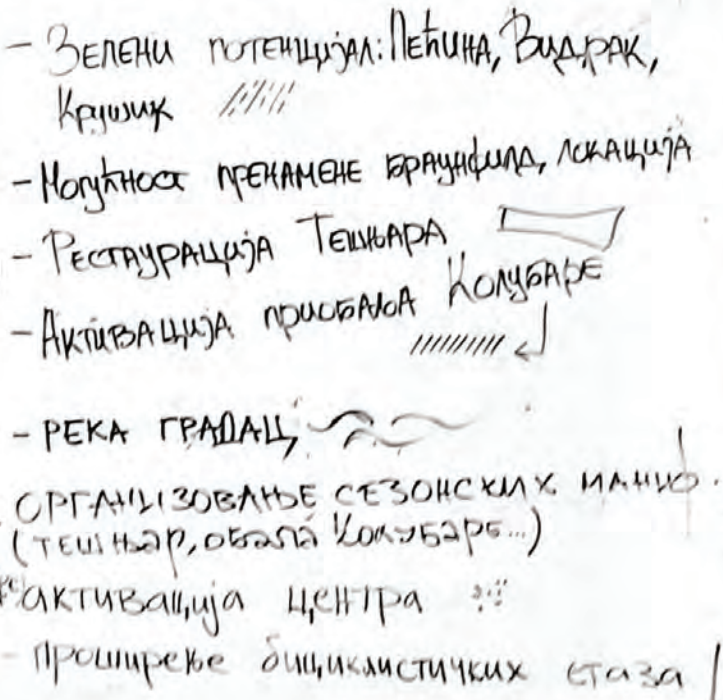 - Зелени потенцијал: Пећина, Видрак,
Крушик
- Могућност пренамене браунфилд, локација
- Рестаурација Тешњара
- Активација приобалја Колубаре
- река Градац
организовање сезонских маниф.
(Тешњар, обала Колубаре...)
активација центра
- проширење бициклистичких стаза